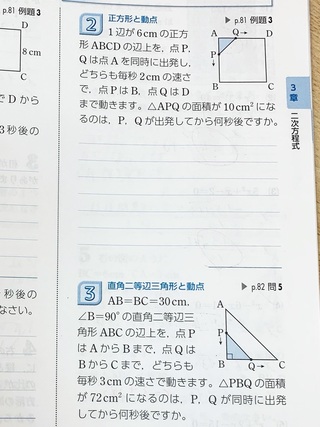 p.81 例題3
D
8cm
C
でDから
3秒後の
秒後の
なさい。
2 正方形と動点
▶p.81 例題3
1辺が6cmの正方
形ABCDの辺上を,点P,
Qは点Aを同時に出発し,
どちらも毎秒2cmの速さ
で,点PはB,点QはD
まで動きます。△APQの面積が10cm²にな
るのは,P,Qが出発してから何秒後ですか。
A Q→ D
P
↓
B C
3 直角二等辺三角形と動点
▶p.82 問5
AB=BC=30cm,
∠B=90°の直角二等辺三
角形ABCの辺上を,点P
はAからBまで,点Qは
BからCまで,どちらも
毎秒3cmの速さで動きます。△PBQの面積
が72cm²になるのは,P,Qが同時に出発
してから何秒後ですか。
A
P
↓
B Q→ C
3
章
二次方程式